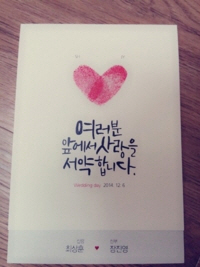 여러분
앞에서 사랑을
서약합니다.
Wedding day 2014. 12. 6
신랑 신부
최상훈 ♥ 장진영